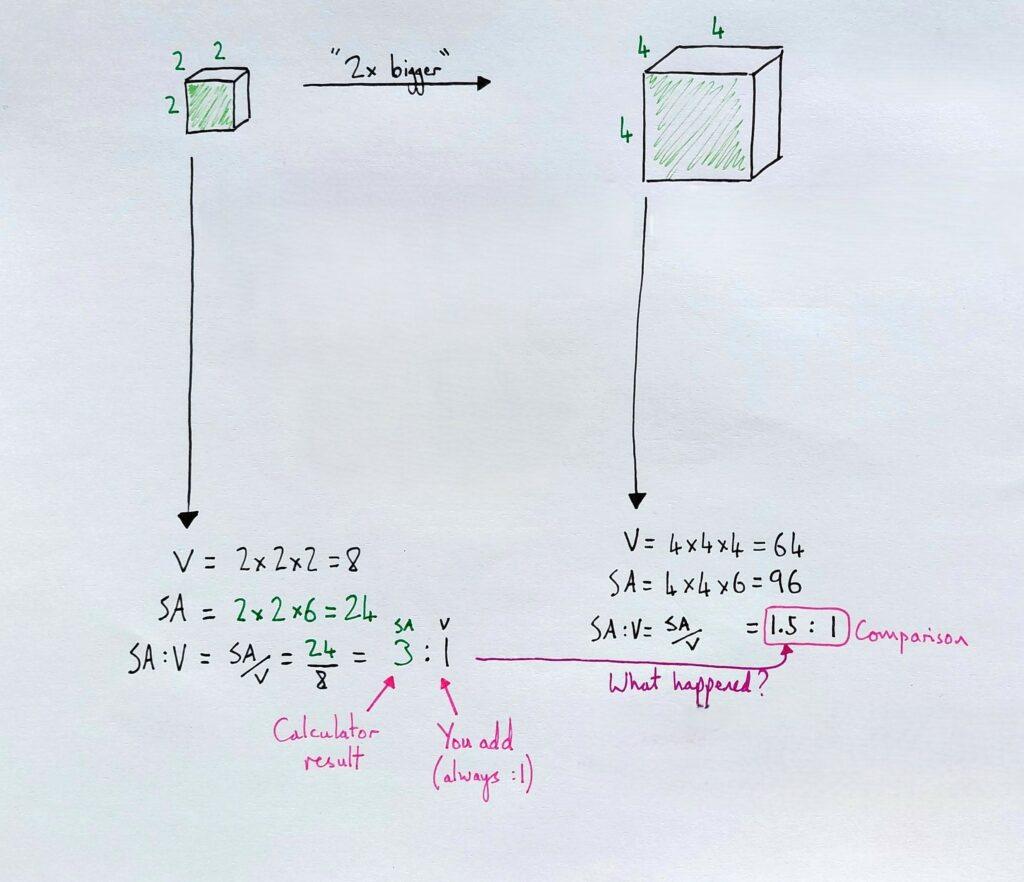 2
2
2
"2x bigger"
4
4
4
V = 2x2x2=8
SA = 2x2x6=24
SA V
SA:V = SA/V = 24/8 = 3:1
Calculator
result
You add
(always :1)
V= 4x4x4=64
SA= 4x4x6=96
SA:V= SA/V = 1.5 : 1 Comparison
What happened?